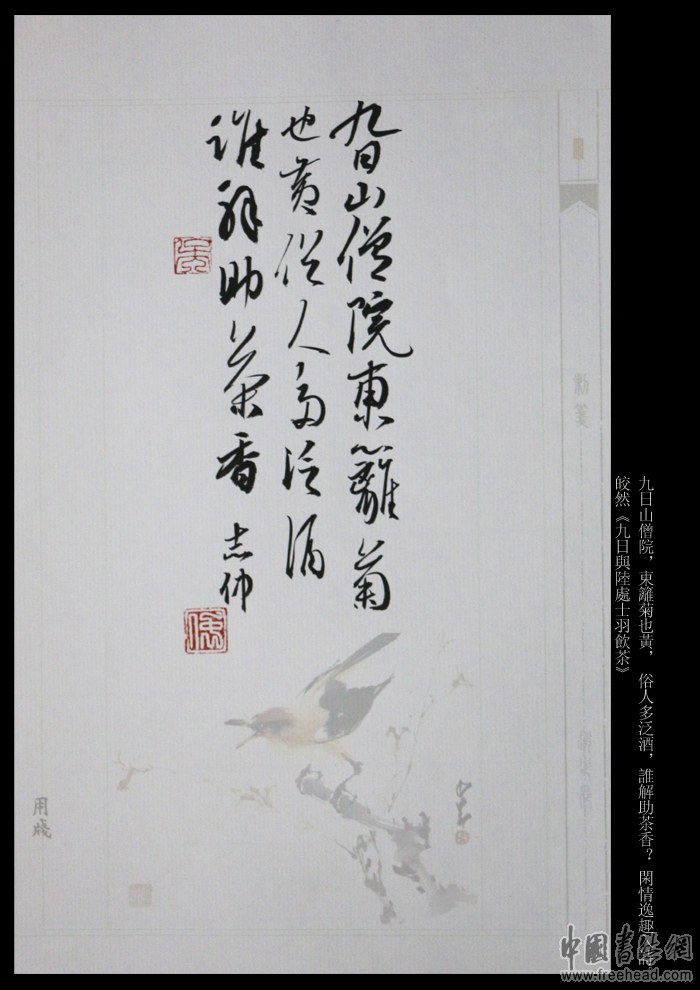 九日山僧院東籬菊
也黃俗人多泛酒
誰解助茶香 志仲
用牋
九日山僧院，東籬菊也黃，　俗人多泛酒，誰解助茶香？　閑情逸趣
皎然《九日與陸處士羽飲茶》
中國書法網
www.freehead.com